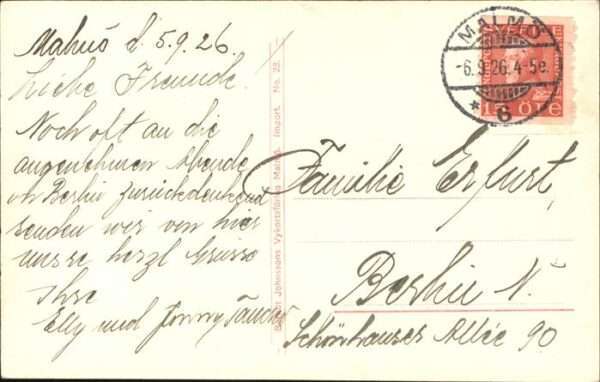 Malmö d. 5.9.26.
Liebe Freunde.
Noch oft an die
angenehmen Abende
in Berlin zurückdenkend
senden wir von hier
unsre herzl Grüsse
Ihre
Elly und Jonny
Johnssons Vykortsförlag Malmö. Import. No. 28.
MALMÖ
-6.9.26.4-5e.
* 6
SVERIGE
15 ÖRE
Familie Erfurt,
Berlin N.
Schönhauser Allée 90